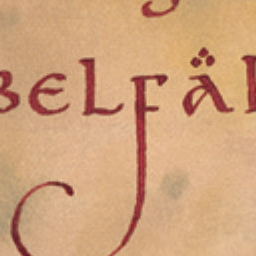 BELFÄ